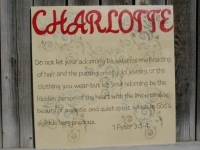 CHARLOTTE
Do not let your adorning be external-the braiding
of hair and the putting on of gold jewelry, or the
clothing you wear-but let your adorning be the
hidden person of the heart with the imperishable
beauty of a gentle and quiet spirit, which in God's
sight is very precious.
1 Peter 3:3-4